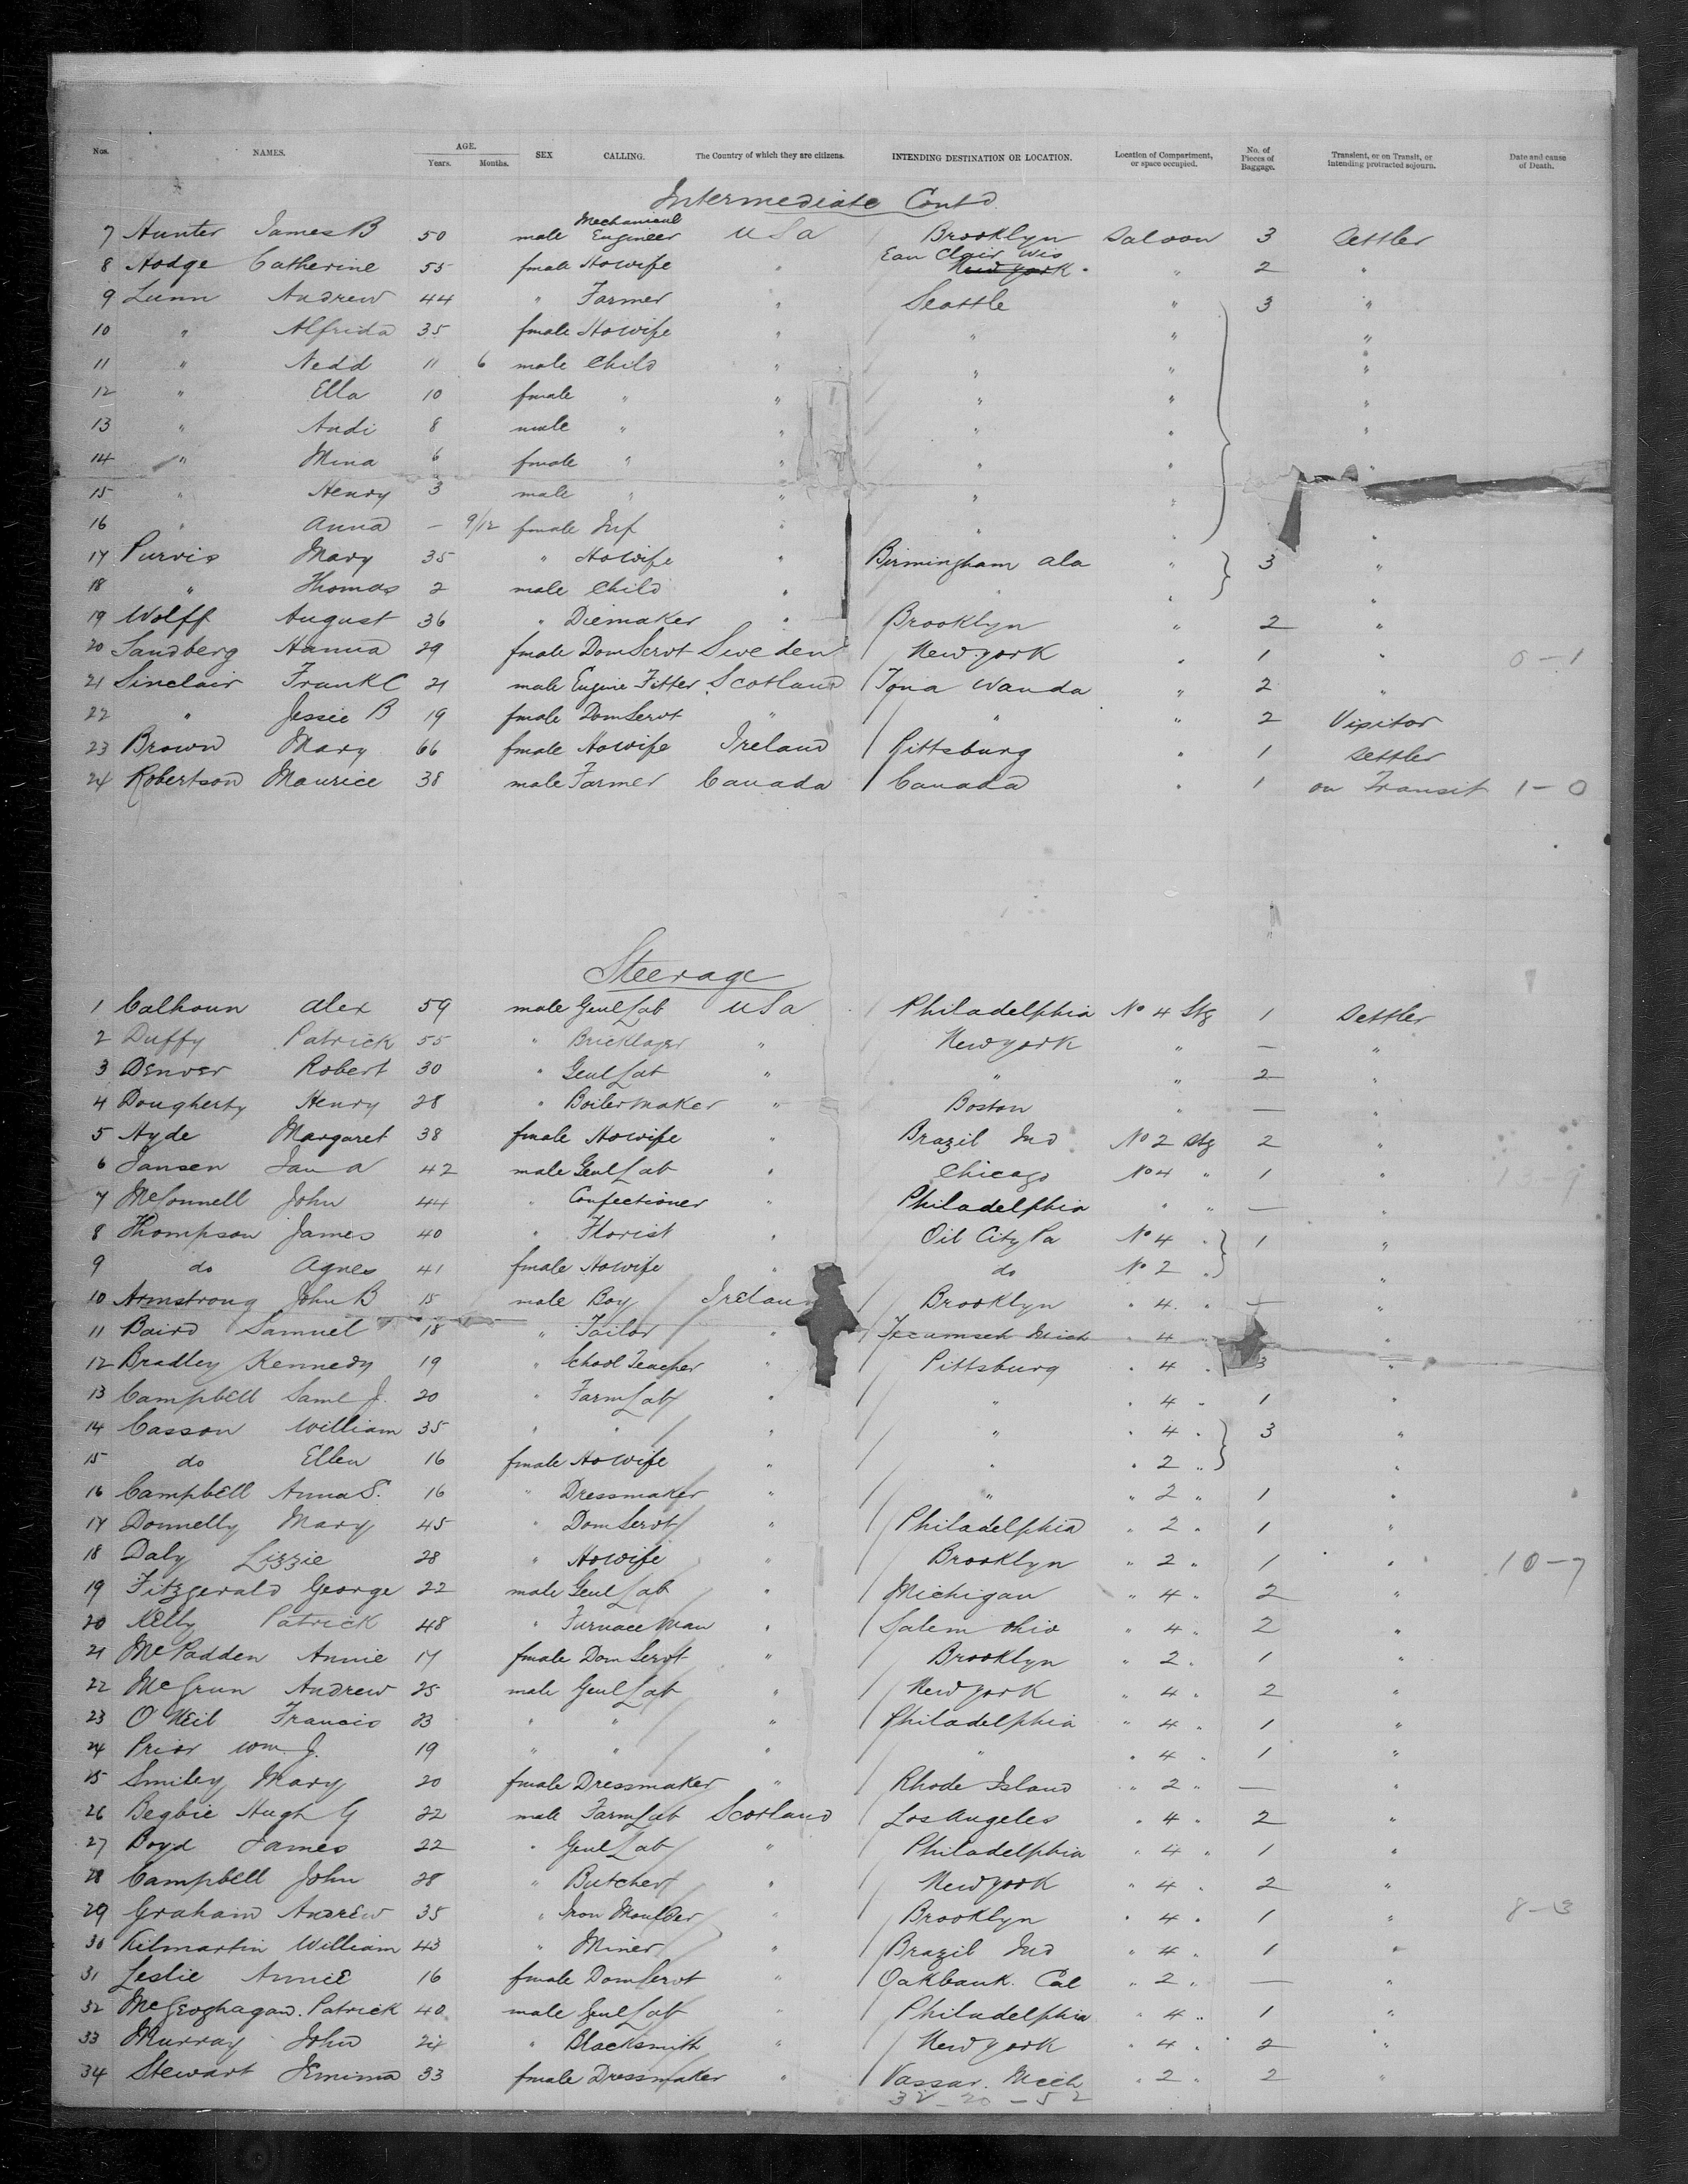 Nos. NAMES. AGE. Years. Months. SEX CALLING. The Country of which they are citizens. INTENDING DESTINATION OR LOCATION. Location of Compartment, or space occupied. No. of Pieces of Baggage. Transient, or on Transit, or intending protracted sojourn. Date and cause of Death.
Intermediate Contd.
7 Hunter James B 50 male Mechanical Engineer USa Brooklyn Saloon 3 Settler
8 Hodge Catherine 55 fmale Howife " Eau Clair Wis New york " 2 "
9 Lunn Andrew 44 " Farmer " Seattle " 3 "
10 " Alfrida 35 fmale Howife " " " "
11 " Nedd 11 6 male Child " " " "
12 " Ella 10 fmale " " " " "
13 " Andi 8 male " " " " "
14 " Mina 6 fmale " " " " "
15 " Henry 3 male " " " "
16 " Anna — 9/12 fmale Inf " " " "
17 Purvis Mary 35 " Howife " Birmingham ala " 3 "
18 " Thomas 2 male Child " " " "
19 Wolff August 36 " Diemaker " Brooklyn " 2 "
20 Sandberg Hanna 29 fmale Dom Servt Sweden New york " 1 " 0-1
21 Sinclair Frank C 21 male Engine Fitter Scotland Tona Wanda " 2 "
22 " Jessie B 19 fmale Dom Servt " " " 2 Visitor
23 Brown Mary 66 fmale Howife Ireland Pittsburg " 1 Settler
24 Robertson Maurice 38 male Farmer Canada Canada " 1 on Transit 1-0
Steerage
1 Calhoun Alex 59 male Genl Lab USa Philadelphia No 4 Stg 1 Settler
2 Duffy Patrick 55 " Bricklayer " New york " — "
3 Denver Robert 30 " Genl Lab " " " 2 "
4 Dougherty Henry 28 " Boilermaker " Boston " — "
5 Hyde Margaret 38 fmale Howife " Brazil Ind No 2 Stg 2 "
6 Jansen Jan A 42 male Genl Lab " Chicago No 4 " 1 "
7 McConnell John 44 " Confectioner " Philadelphia " " — "
8 Thompson James 40 " Florist " Oil City Pa No 4 " 1 "
9 do Agnes 41 fmale Howife " do No 2 " "
10 Armstrong John B 15 male Boy Ireland Brooklyn " 4 " — "
11 Baird Samuel 18 " Tailor " Tecumseh Mich " 4 "
12 Bradley Kennedy 19 " School Teacher " Pittsburg " 4 " 3 "
13 Campbell Saml J. 20 " Farm Lab " " " 4 " 1 "
14 Casson William 35 " " " " " 4 " 3 "
15 do Ellen 16 fmale Howife " " " 2 " "
16 Campbell Anna S. 16 " Dressmaker " " " 2 " 1 "
17 Donnelly Mary 45 " Dom Servt " Philadelphia " 2 " 1 "
18 Daly Lizzie 28 " Howife " Brooklyn " 2 " 1 " 10-7
19 Fitzgerald George 22 male Genl Lab " Michigan " 4 " 2 "
20 Kelly Patrick 48 " Furnace Man " Salem Ohio " 4 " 2 "
21 McPadden Annie 17 fmale Dom Servt " Brooklyn " 2 " 1 "
22 McGrun Andrew 25 male Genl Lab " New york " 4 " 2 "
23 O'Neil Francis 23 " " " Philadelphia " 4 " 1 "
24 Prior Wm. J. 19 " " " " " 4 " 1 "
25 Smiley Mary 20 fmale Dressmaker " Rhode Island " 2 " — "
26 Begbie Hugh G 22 male Farm Lab Scotland Los Angeles " 4 " 2 "
27 Boyd James 22 " Genl Lab " Philadelphia " 4 " 1 "
28 Campbell John 28 " Butcher " New york " 4 " 2 "
29 Graham Andrew 35 " Iron Moulder " Brooklyn " 4 " 1 " 8-3
30 Kilmartin William 43 " Miner " Brazil Ind " 4 " 1 "
31 Leslie Annie 16 fmale Dom Servt " Oakbank. Cal " 2 " — "
32 McGeoghagan. Patrick 40 male Genl Lab " Philadelphia " 4 " 1 "
33 Murray John 24 " Blacksmith " New york " 4 " 2 "
34 Stewart Jemima 33 fmale Dressmaker " Vassar. Mich " 2 " 2 "
32 - 20 - 52